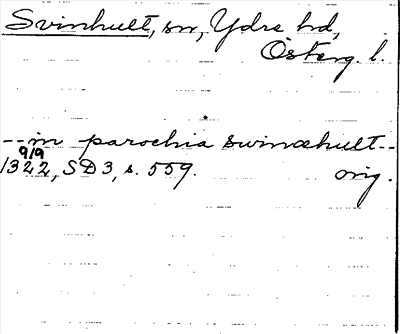 Svinhult, sn, Ydre hd,
Österg. l.
-- in parochia swinæhult --
9/9
1322, SD3, s. 559. orig.